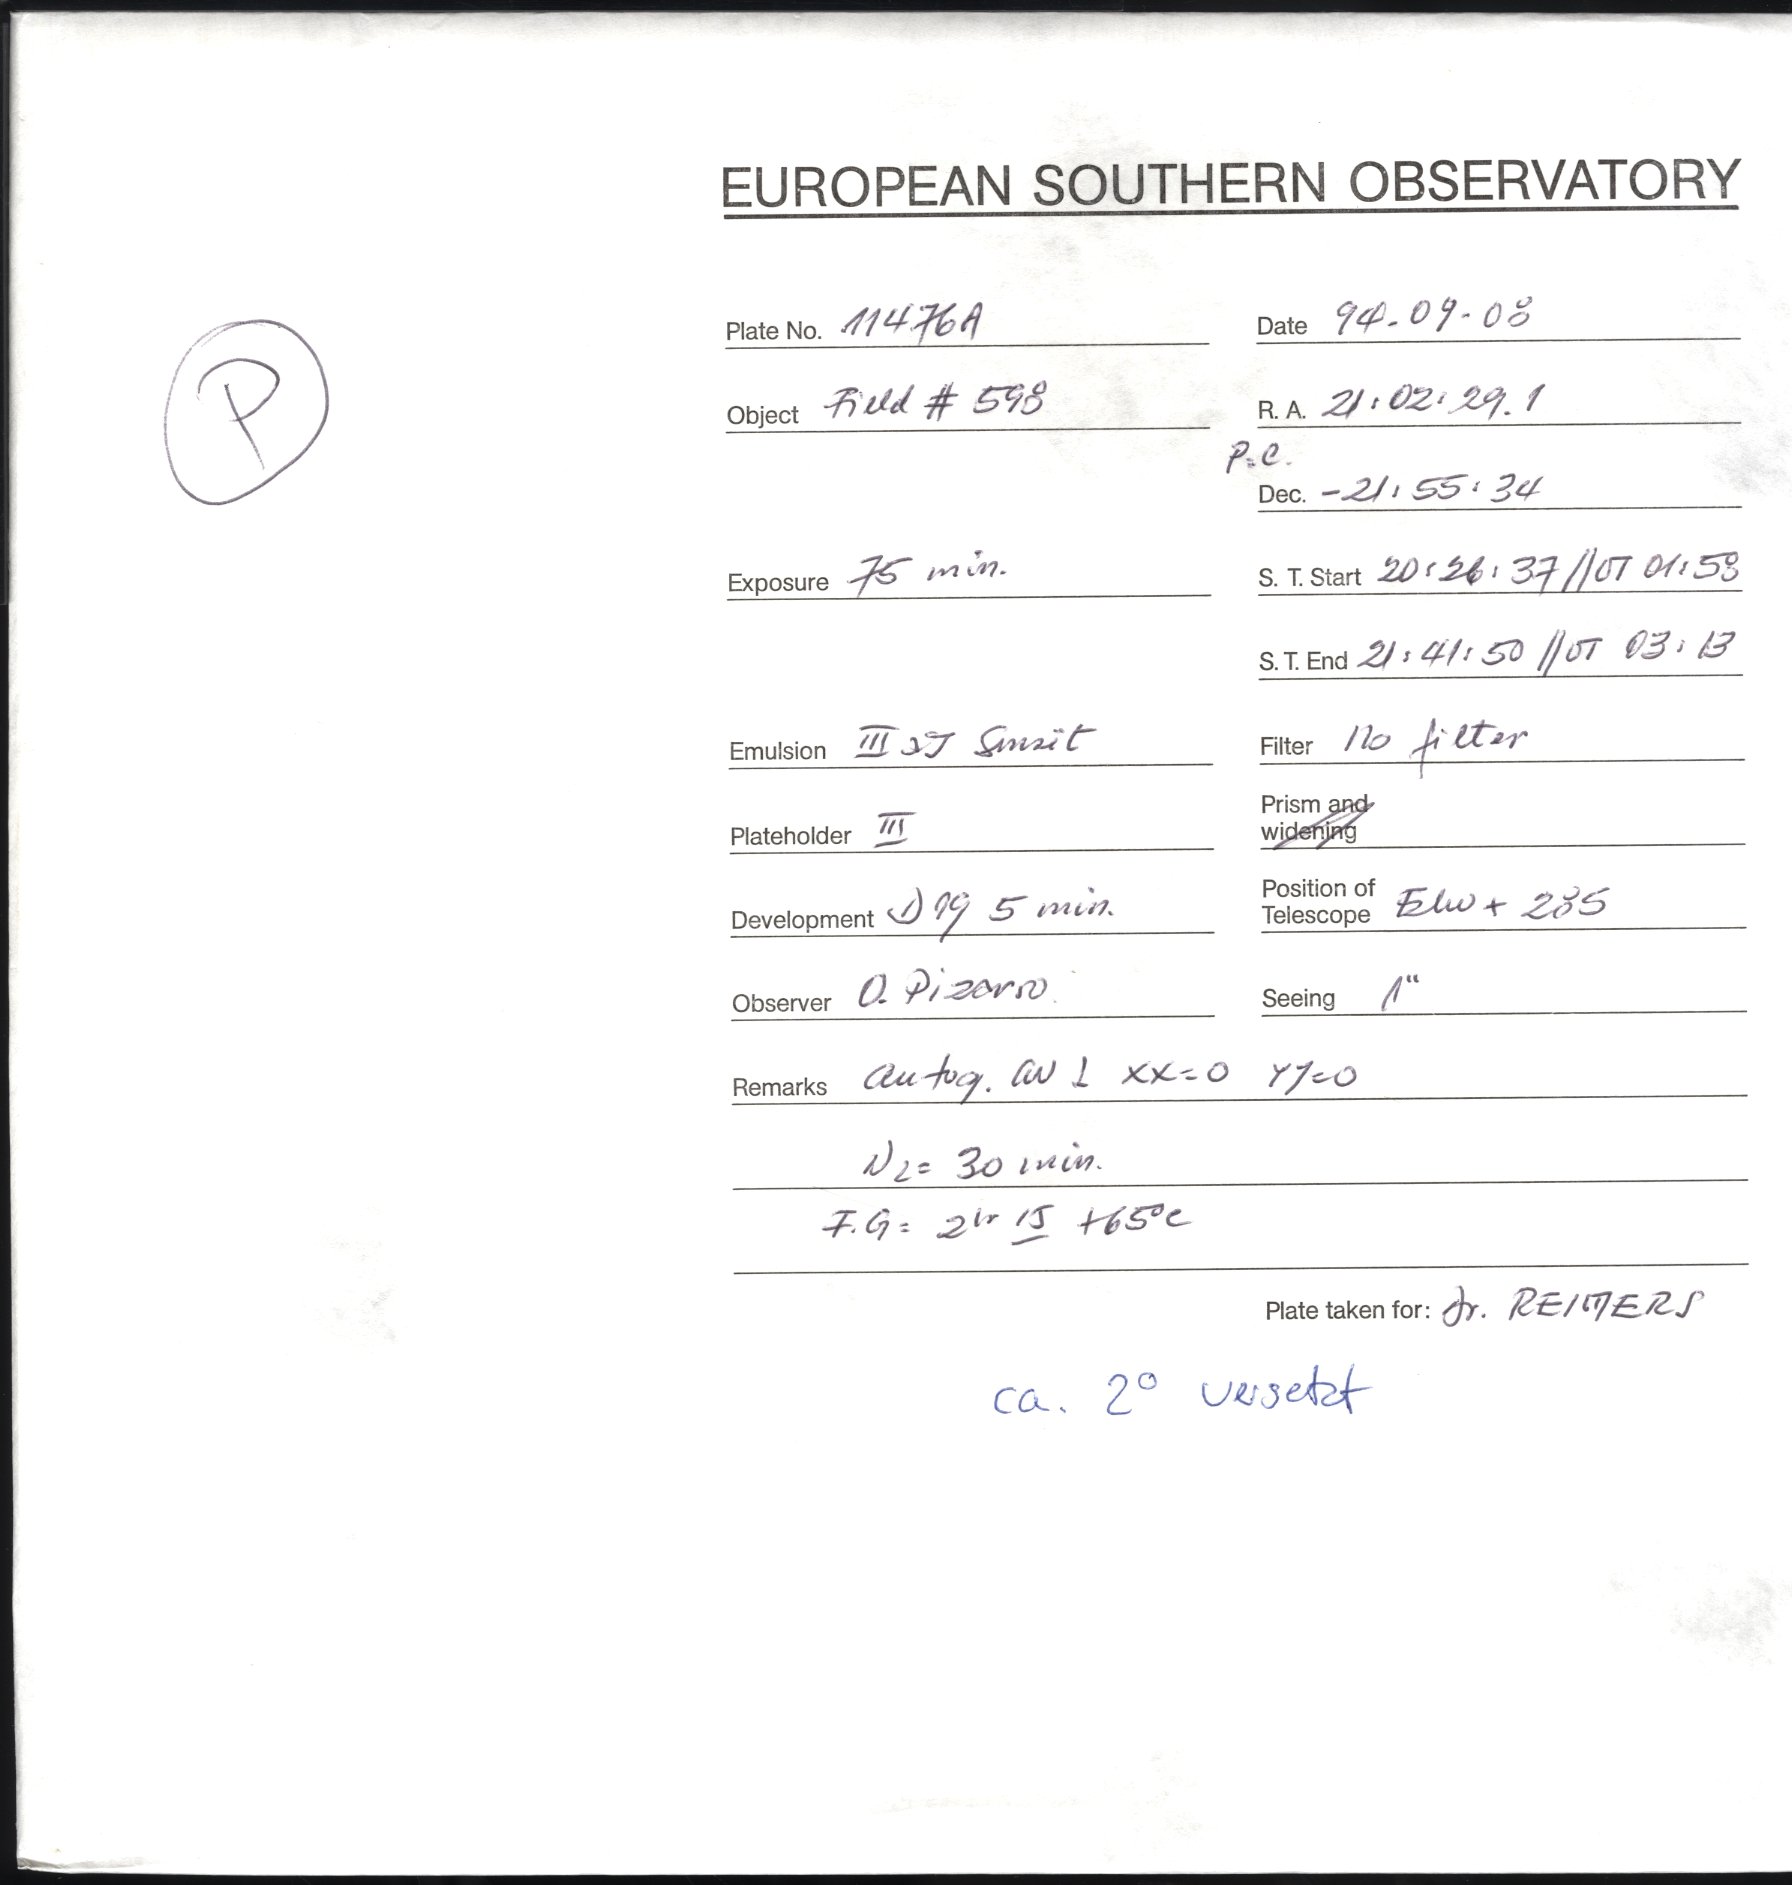 EUROPEAN SOUTHERN OBSERVATORY
P
Plate No. 11476A Date 94-09-08
Object Field # 598 R. A. 21:02:29.1
P.C.
Dec. -21:55:34
Exposure 75 min. S. T. Start 20:26:37 // UT 01:58
S. T. End 21:41:50 // UT 03:13
Emulsion III Filter no filter
Plateholder III Prism and widening
Development D19 5 min. Position of Telescope + 285
Observer O. Pizarro Seeing 1"
Remarks autog. XX=0 YY=0
N2= 30 min.
F.G= 2hr 15 +65°C
Plate taken for: Dr. REIMERS
ca. 2° versetzt